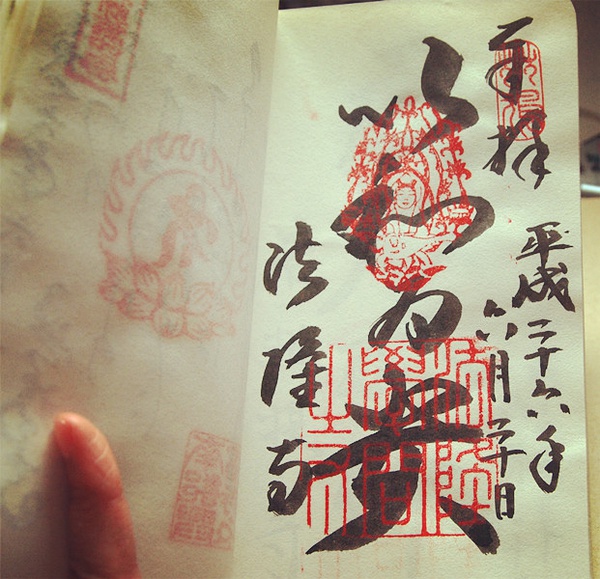 奉拝
平成二十六年
六月二十日
以和為貴
法隆寺